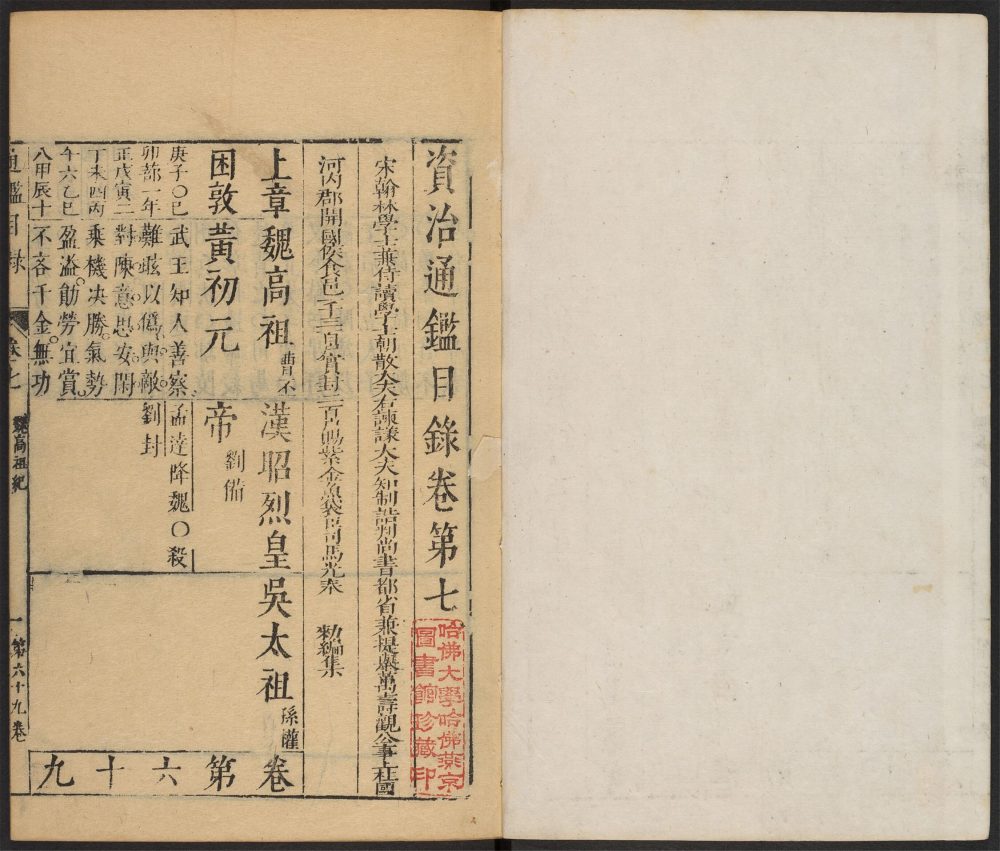 資治通鑑目錄卷第七
哈佛大學哈佛燕京
圖書館珍藏印
宋翰林學士兼侍讀學士朝散大夫右諫議大夫知制誥判尚書都省兼提舉萬壽觀公事上柱國
河內郡開國侯食邑一千三百戶食實封二百戶賜紫金魚袋臣司馬光奉 勑編集
上章 魏高祖 曹丕 漢昭烈皇 吳太祖 孫權 卷
困敦 黃初元 帝 劉備 第
庚子〇巳 武王知人善察 孟達降魏〇殺 六
卯蔀一年 難眩以僞與敵 劉封
正戊寅二 對陳意思安閑 十
丁未四丙 乘機决勝氣勢
午六乙巳 盈溢勛勞宜賞 九
八甲辰十 不吝千金無功
通鑑目錄 卷七 魏高祖紀 一 第六十九卷